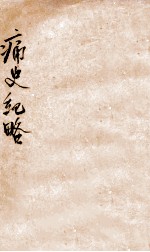 痛史紀略